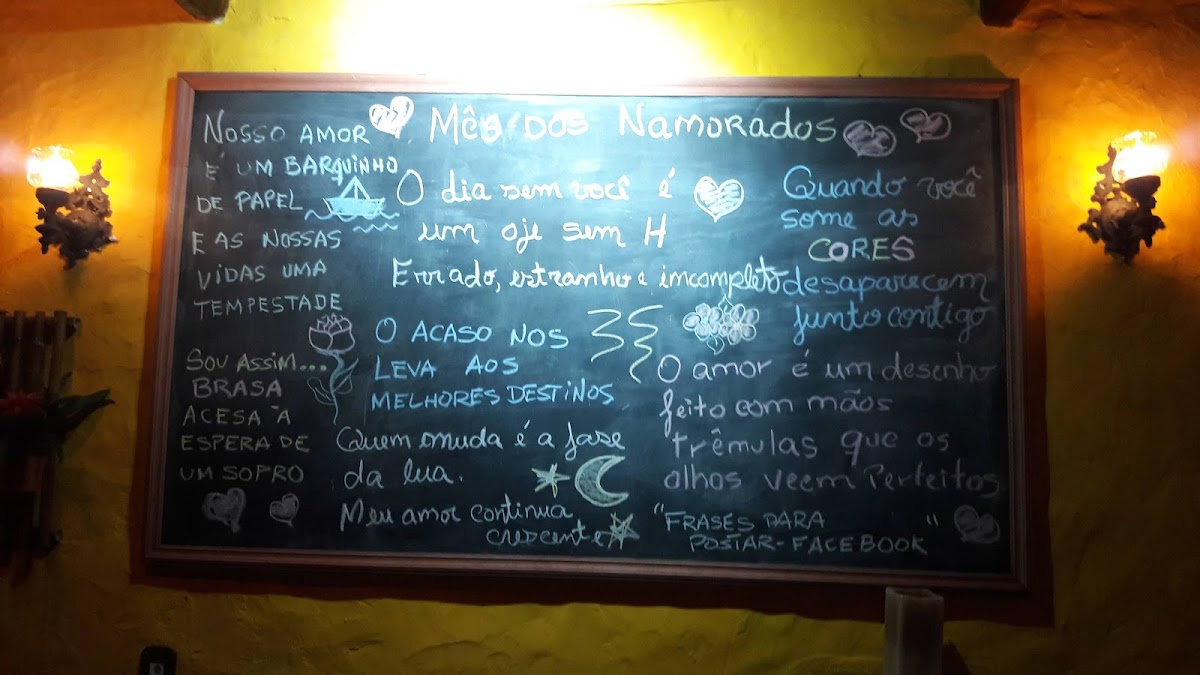 Mês dos Namorados
NOSSO AMOR
É UM BARQUINHO
DE PAPEL
E AS NOSSAS
VIDAS UMA
TEMPESTADE
SOU ASSIM...
BRASA
ACESA À
ESPERA DE
UM SOPRO
O dia sem você é
um oje sem H
Errado, estranho e incompleto
O ACASO NOS
LEVA AOS
MELHORES DESTINOS
Quem muda é a fase
da lua.
Meu amor continua
crescente
Quando você
some as
CORES
desaparecem
junto contigo
O amor é um desenho
feito com mãos
trêmulas que os
olhos veem Perfeitos
"FRASES PARA
POSTAR-FACEBOOK"